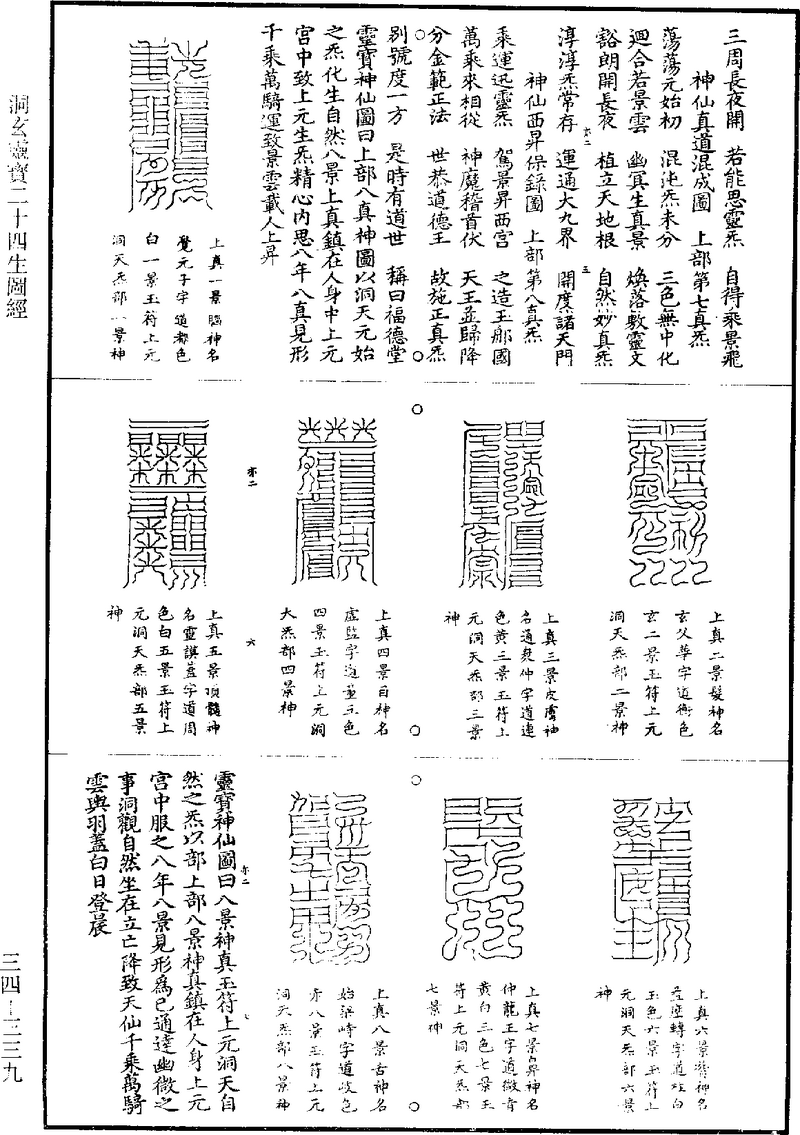 三周長夜開　若能思靈炁　自得乘景飛
神仙真道混成圖　上部第七真炁
蕩蕩元始初　混沌炁未分　三色無中化
迴合若景雲　幽冥生真景　煥落敷靈文
豁朗開長夜　植立天地根　自然妙真炁
淳淳炁常存　運通大九界　開度諸天門
神仙西昇保錄圖　上部第八真炁
乘運迅靈炁　駕景昇西宮　之造玉那國
萬乘來相從　神魔稽首伏　天王並歸降
分金範正法　世恭道德王　故施正真炁
別號度一方　是時有道世　稱曰福德堂
靈寶神仙圖曰上部八真神圖以洞天元始
之炁化生自然八景上真鎮在人身中上元
宮中致上元生炁精心內思八年八真見形
千乘萬騎運致景雲載人上昇
上真一景腦神名
覺元子字道都色
白一景玉符上元
洞天炁部一景神
上真二景髮神名
玄父華字道衡色
玄二景玉符上元
洞天炁部二景神
上真三景皮膚神
名通衆仲字道連
色黃三景玉符上
元洞天炁部三景
神
上真四景目神名
虛監字道童五色
四景玉符上元洞
天炁部四景神
上真五景頂髓神
名靈謨蓋字道周
色白五景玉符上
元洞天炁部五景
神
上真六景膂神名
益歷轉字道柱白
玉色六景玉符上
元洞天炁部六景
神
上真七景鼻神名
仲龍王字道微青
黃白三色七景玉
符上元洞天炁部
七景神
上真八景舌神名
始梁峙字道岐色
赤八景玉符上元
洞天炁部八景神
靈寶神仙圖曰八景神真玉符上元洞天自
然之炁以部上部八景神真鎮在人身上元
宮中服之八年八景見形為己通達幽微之
事洞觀自然坐在立亡降致天仙千乘萬騎
雲輿羽蓋白日登晨
洞玄靈寶二十四生圖經
三四—三三九